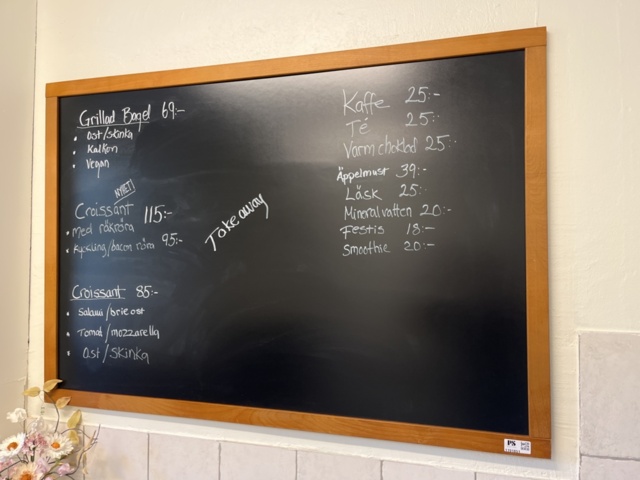 Grillad Bagel 69:-
• Ost/skinka
• Kalkon
• Vegan
NYHET
Croissant 115:-
• med räkröra
• Kyckling/bacon röra 95:-
Croissant 85:-
• Salami/brieost
• Tomat/mozzarella
• Ost/skinka
Take away
Kaffe 25:-
Té 25:-
Varm choklad 25:-
Äppelmust 39:-
Läsk 25:-
Mineralvatten 20:-
Festis 18:-
Smoothie 20:-
PS